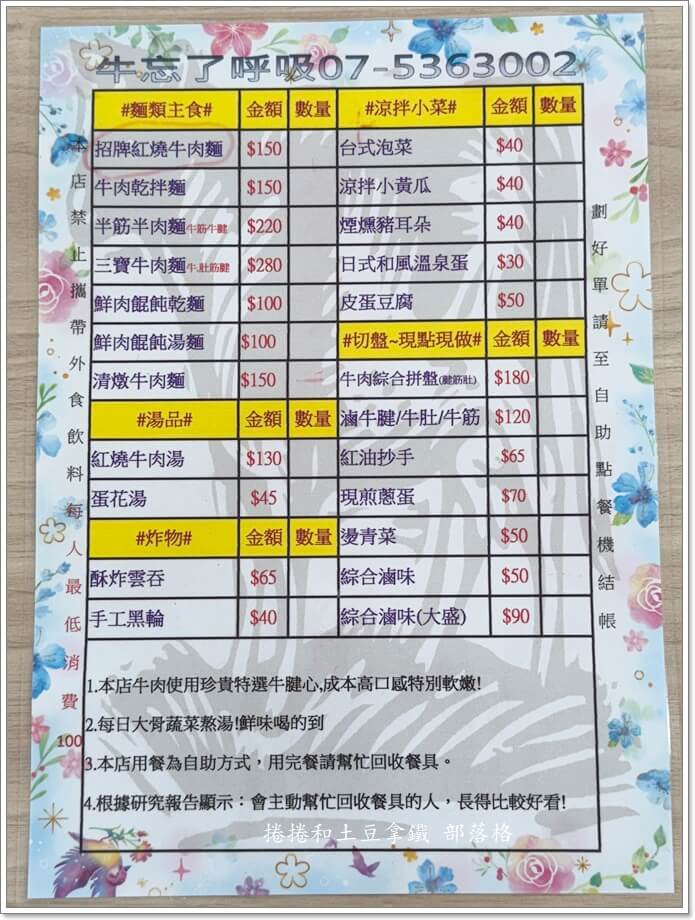 牛忘了呼吸07-5363002
#麵類主食# 金額 數量
招牌紅燒牛肉麵 $150
牛肉乾拌麵 $150
半筋半肉麵 牛筋牛腱 $220
三寶牛肉麵 牛.肚筋腱 $280
鮮肉餛飩乾麵 $100
鮮肉餛飩湯麵 $100
清燉牛肉麵 $150
#湯品# 金額 數量
紅燒牛肉湯 $130
蛋花湯 $45
#炸物# 金額 數量
酥炸雲吞 $65
手工黑輪 $40
#涼拌小菜# 金額 數量
台式泡菜 $40
涼拌小黃瓜 $40
煙燻豬耳朵 $40
日式和風溫泉蛋 $30
皮蛋豆腐 $50
#切盤~現點現做# 金額 數量
牛肉綜合拼盤(腱筋肚) $180
滷牛腱/牛肚/牛筋 $120
紅油抄手 $65
現煎蔥蛋 $70
燙青菜 $50
綜合滷味 $50
綜合滷味(大盛) $90
1.本店牛肉使用珍貴特選牛腱心,成本高口感特別軟嫩!
2.每日大骨蔬菜熬湯!鮮味喝的到
3.本店用餐為自助方式，用完餐請幫忙回收餐具。
4.根據研究報告顯示：會主動幫忙回收餐具的人，長得比較好看!
本店禁止攜帶外食飲料每人最低消費100
劃好單請至自助點餐機結帳
捲捲和土豆拿鐵 部落格